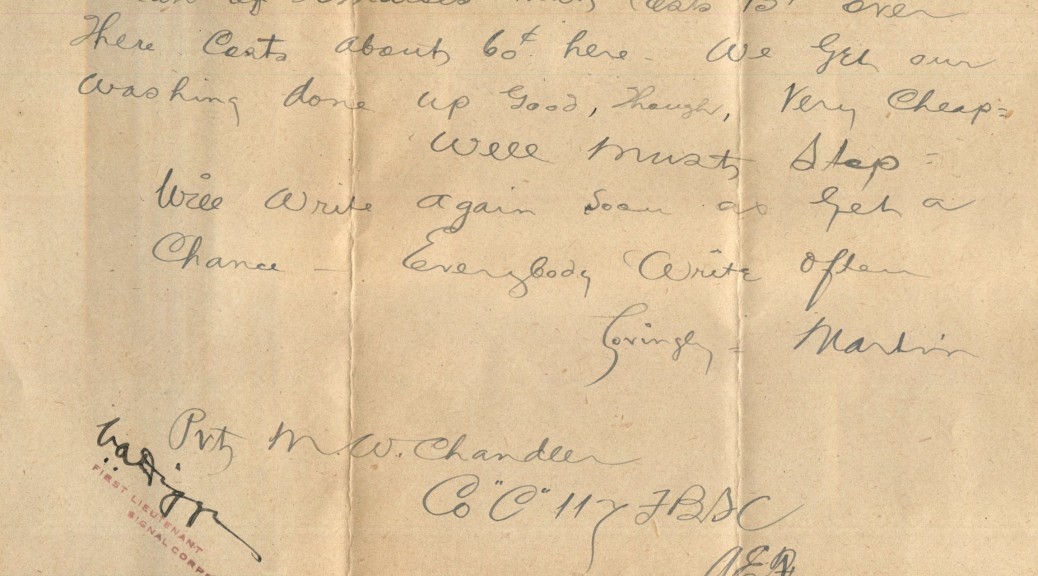 over
There Costs about 60¢ here. We Get our
Washing done up Good, Though, Very Cheap=
Well Must Stop=
Will Write again Soon as Get a
Chance — Everybody Write often
Lovingly = Martin
Pvt M. W. Chandler
Co "C" 117 FBSC
AEF
FIRST LIEUTENANT
SIGNAL CORPS